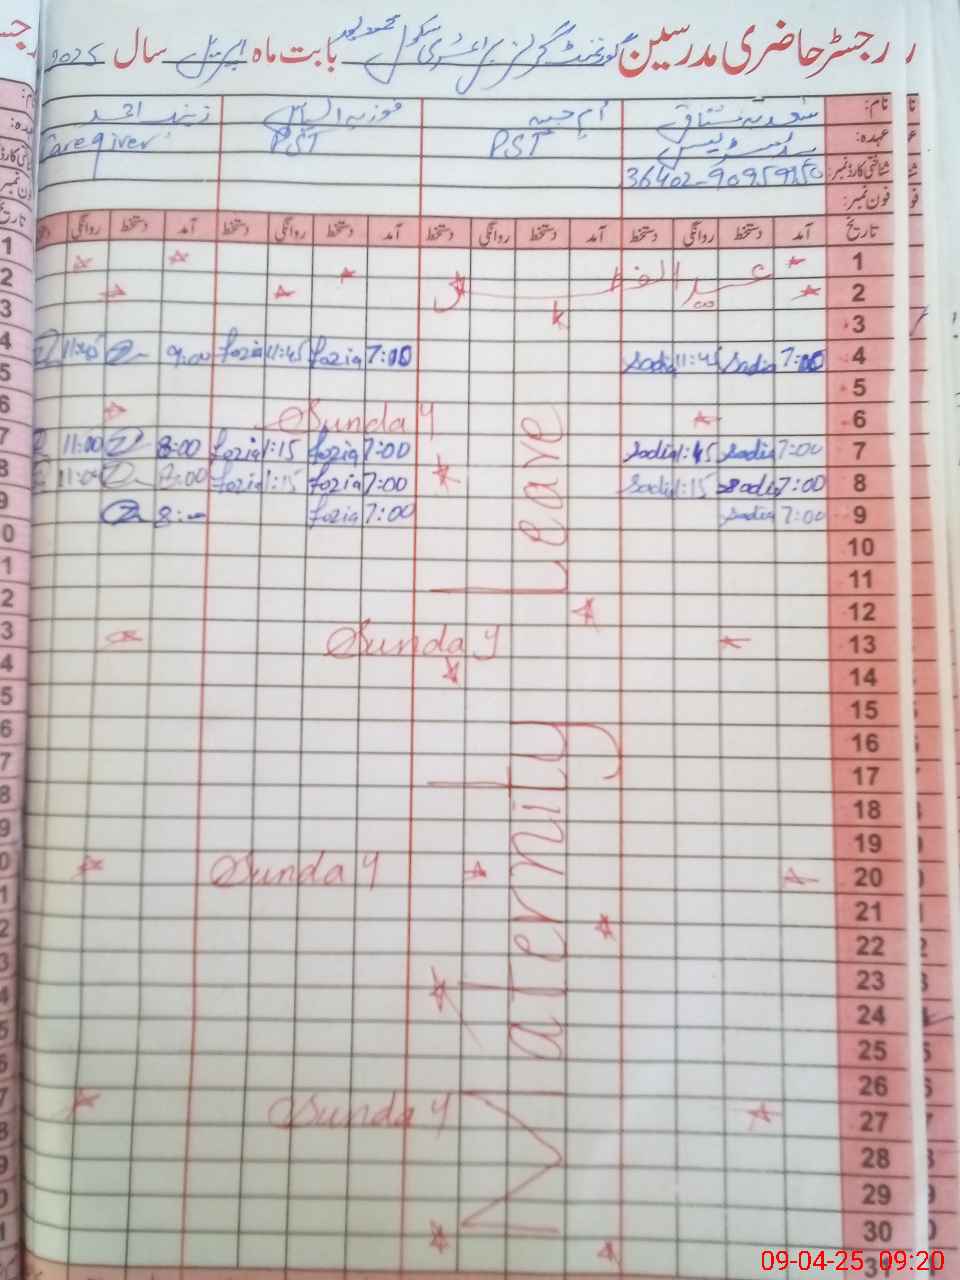 رجسٹر حاضری مدرسین گورنمنٹ گرلز پرائمری سکول محمود پور بابت ماہ اپریل سال 2025
نام: سعدیہ مشتاق ام حبیبہ فوزیہ الیاس زینب احمد
عہدہ: ہیڈ مسٹریس PST PST Caregiver
شناختی کارڈ نمبر:
فون نمبر:
تاریخ آمد دستخط روانگی دستخط آمد دستخط روانگی دستخط آمد دستخط روانگی دستخط آمد دستخط روانگی
1 عید الفطر
2
3
4 7:00 Sadia 11:45 Sadia 7:00 fozia 11:45 fozia 9:00 11:45
5
6 Sunday
7 7:00 Sadia 1:45 Sadia 7:00 fozia 1:15 fozia 8:00 11:00
8 7:00 Sadia 1:15 Sadia 7:00 fozia 1:15 fozia 8:00 11:00
9 7:00 Sadia 7:00 fozia 8:00
10
11
12
13 Sunday
14
15
16
17
18
19
20 Sunday
21
22
23
24
25
26
27 Sunday
28
29
30
31
Maternity Leave
09-04-25 09:20